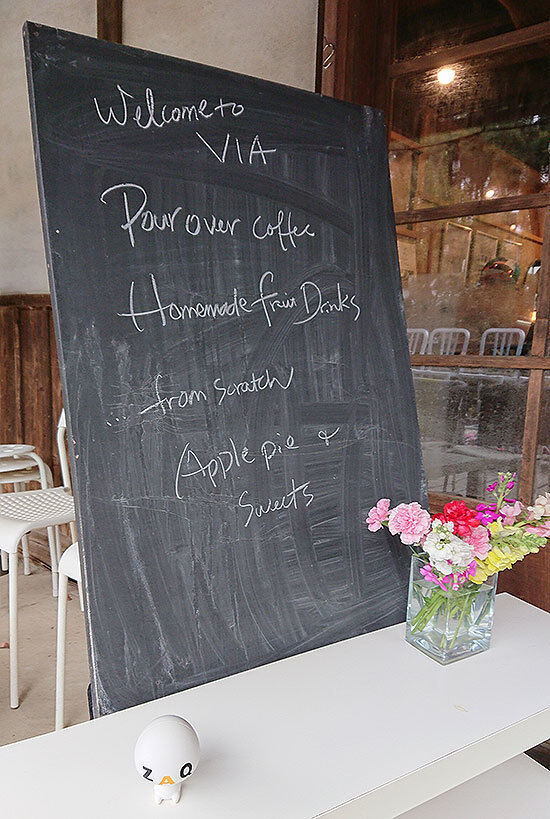 Welcome to
VIA
Pour over coffee
Homemade fruit Drinks
... from scratch
Apple pie &
Sweets
ZAQ